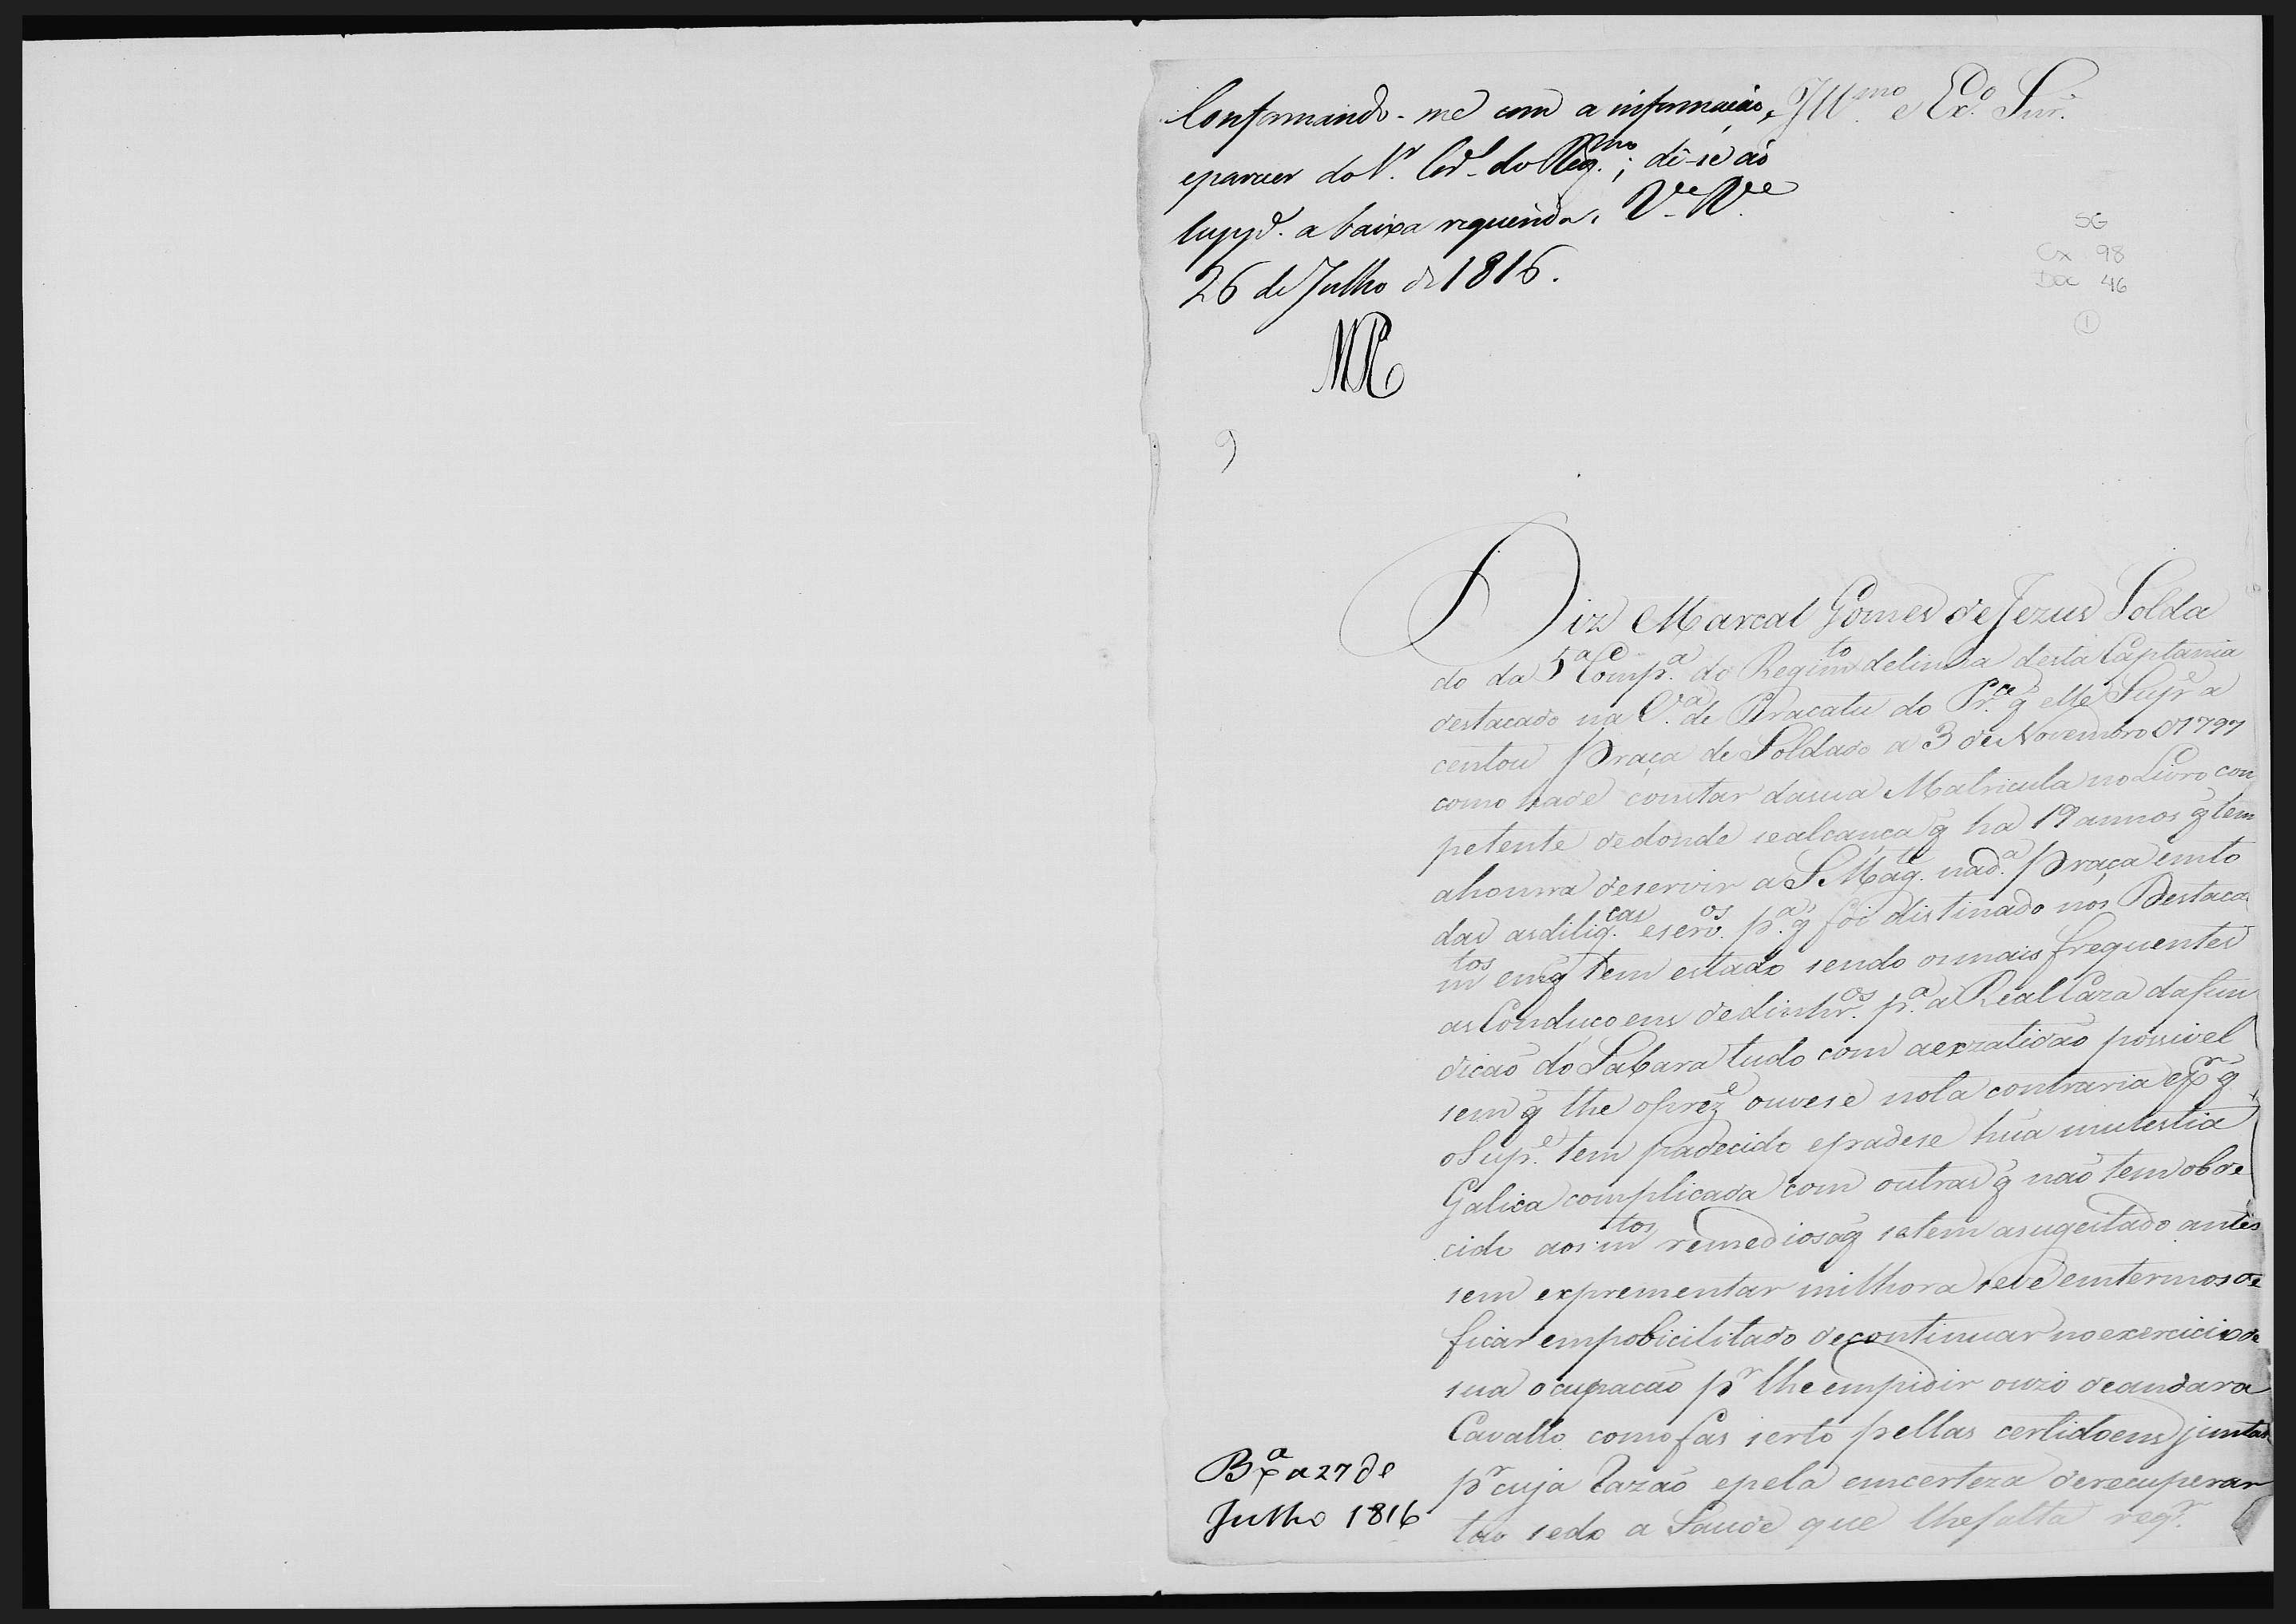 Conformando-me com a informação,
e parecer do Sr. Cor.l do Reg.mo; dê-se ao
supp.e a baixa requerida. V.a R.a
26 de Julho de 1816.
Ill.mo e Ex.o Snr.
SG
Cx 98
Doc 46
1
Diz Marcal Gomes de Jezus Solda
do da 5.a Comp.a do Regim.to de linha desta Captania
destacado na V.a de Paracatu do Pr.ce q̃ elle Sup.e a
centou Praça de Soldado a 3 de Novembro d 1797
como hade constar da sua Matricula no Livro com
petente de donde se alcança q̃ ha 19 annos q̃ tem
a honrra de servir a S. Mag.te na d.a Praça em to
das as dilig.cas e serv.os p.a q̃ foi distinado nos Destaca
m.tos em q̃ tem estado sendo os mais frequentes
as Conduçoens de dinhr.os p.a a Real Caza da fun
dicaõ do Sabara tudo com a exzatidaõ possivel
sem q̃ the oprez.e ouvese nota contraria e p.r q̃
o Sup.e tem padecido e padese hũa mulestia
Galica complicada com outras q̃ naõ tem obde
cido aos m.tos remedios a q̃ se tem asugeitado antes
sem exprementar milhora se vê em termos de
ficar empobicilitado de continuar no exercicio de
sua ocupacaõ p.r lhe empidir o uzo de andar a
Cavallo como fas serto pellas certidoens juntas
p.r cuja Razaõ e pela emcerteza de recuperar
taõ sedo a Saude que lhe falta req.r
B.xa a 27 de
Julho 1816